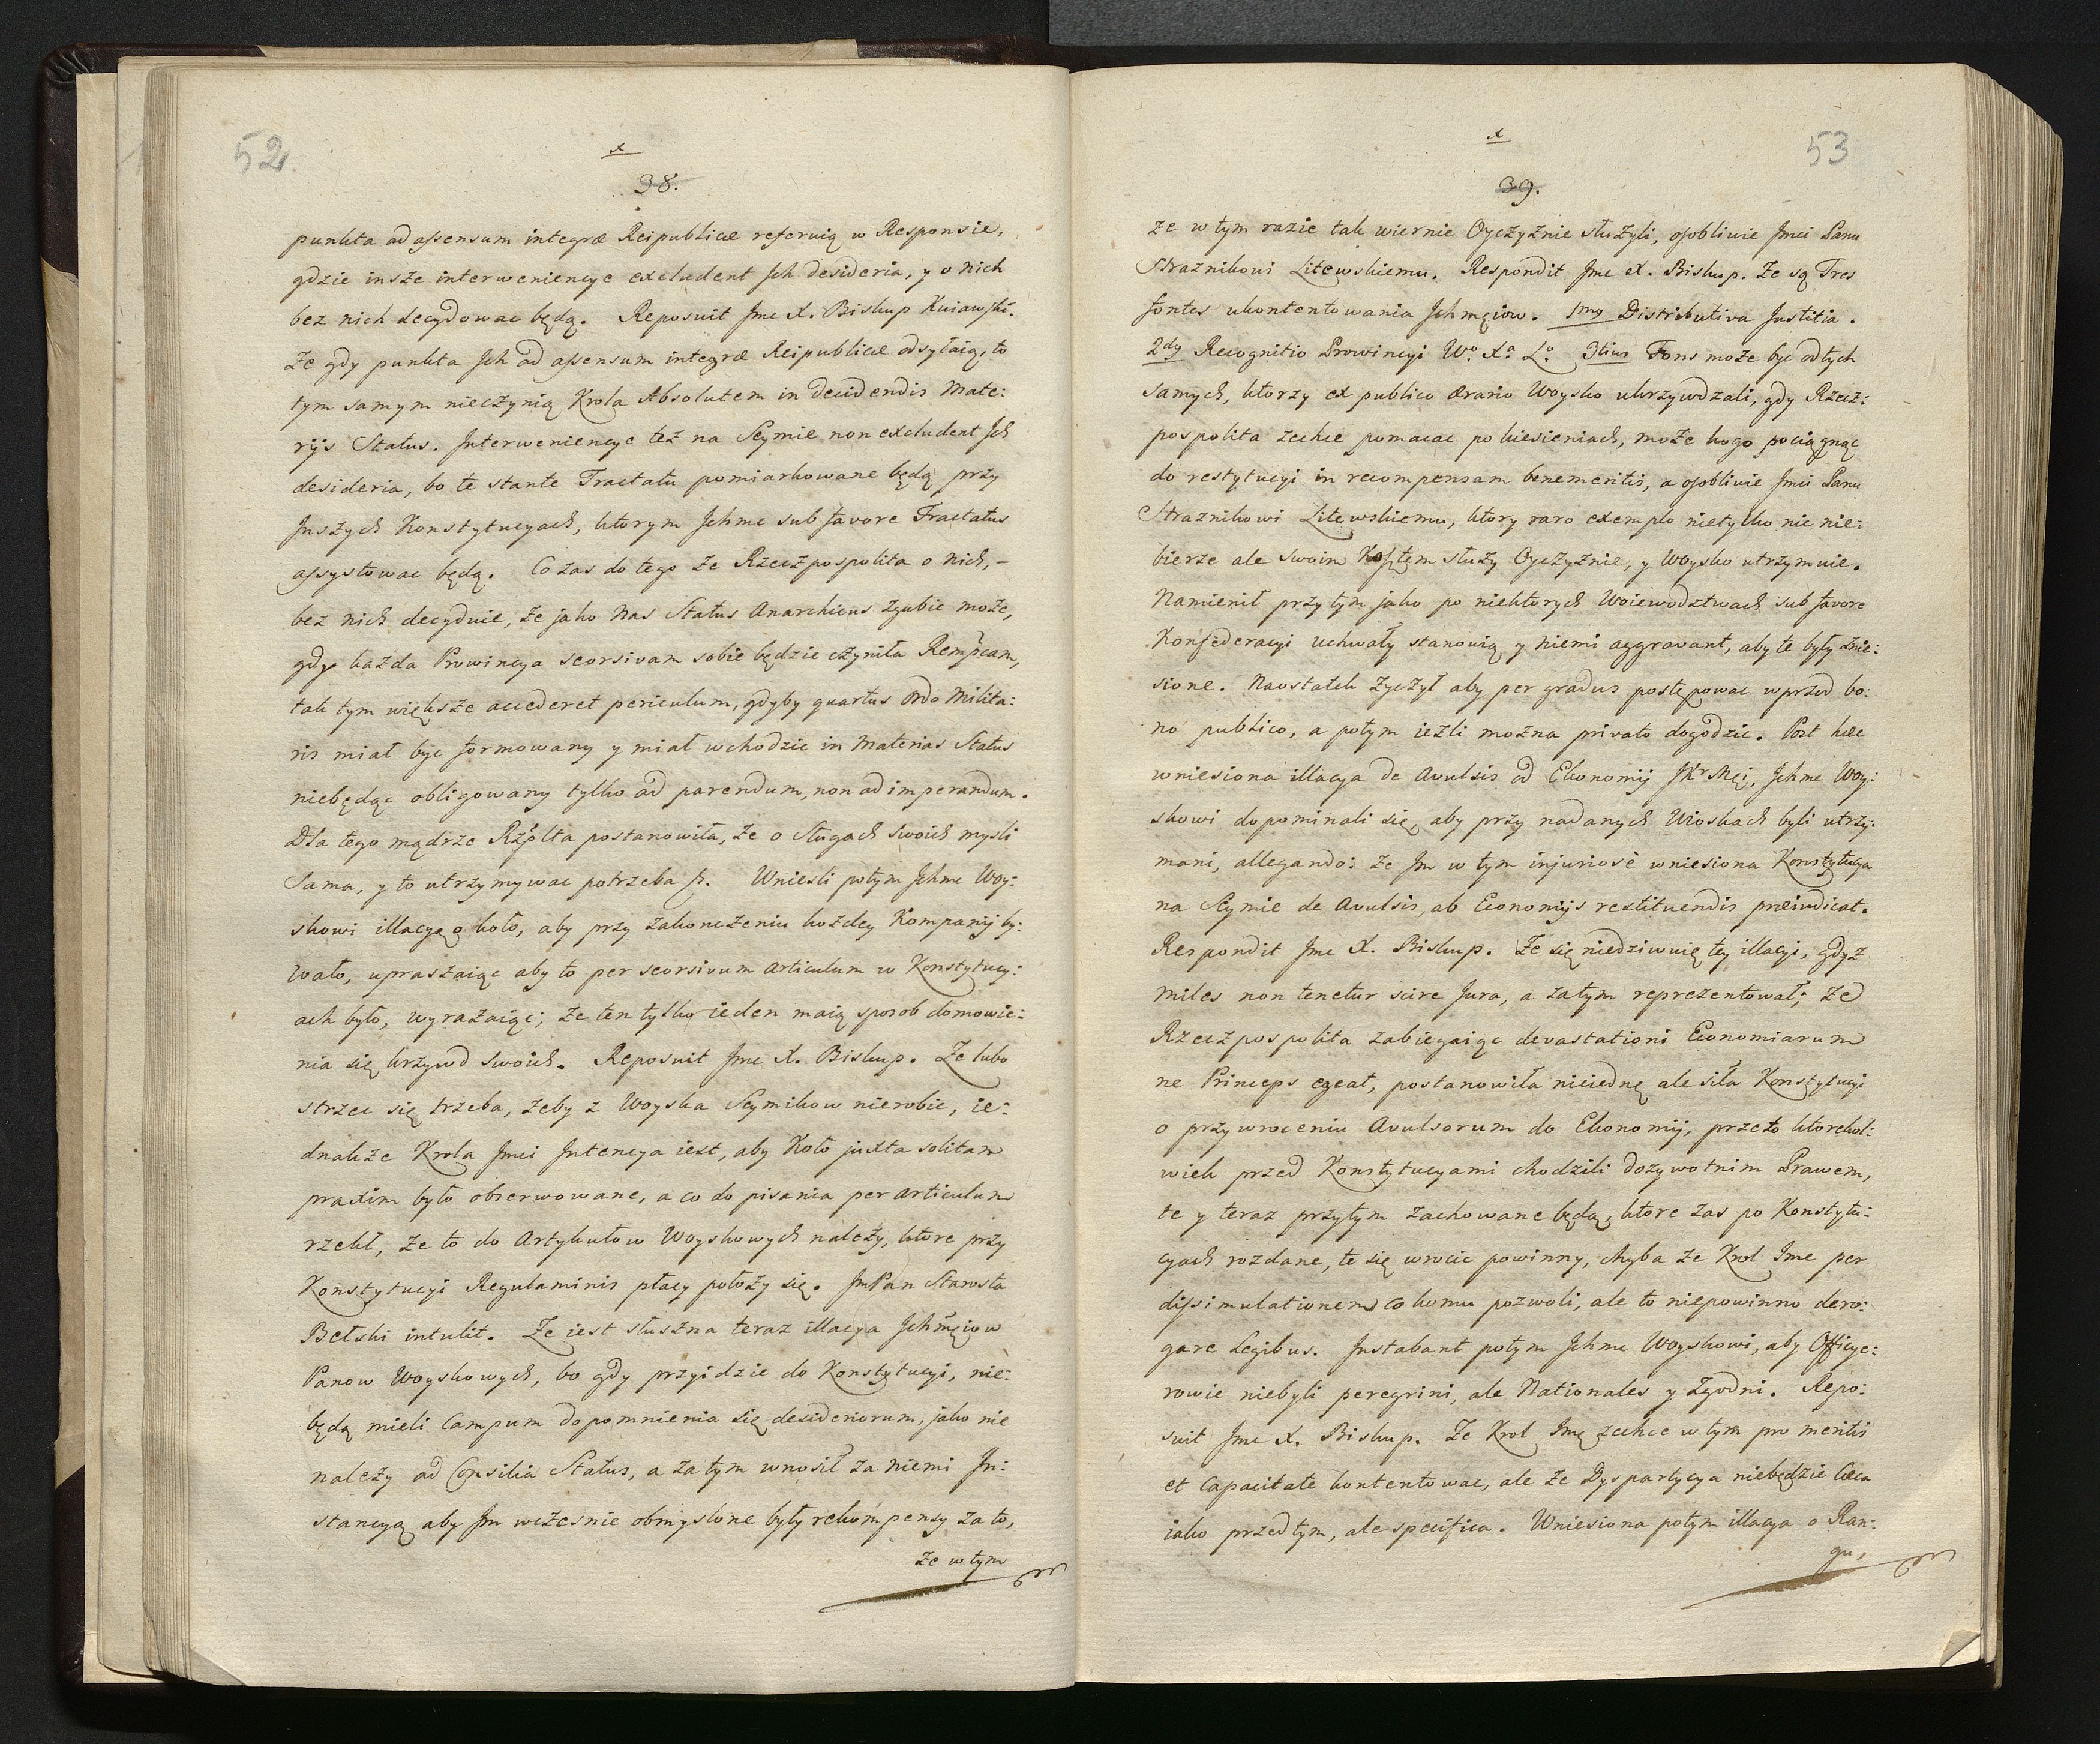 52
x
38.
punkta ad assensum integræ Reipublicæ referuią w Responsie,
gdzie insze interwieniencye excludent Jch desideria, y o nich
bez nich decydować będą. Reposuit Jmc X. Biskup Kuiawski.
Ze gdy punkta Jch ad assensum integræ Reipublicæ odsyłaią, to
tym samym nieczynią Krola Absolutem in decidendis Mate:
rijs Status. Interweniencye też na Seymie non excludent Jch
desideria, bo te stante Tractatu pomiarkowane będą przy
Jnszych Konstytucyach, ktorym Jchmc sub favore Tractatus
assystować będą. Co zas do tego że Rzeczpospolita o nich, –
bez nich decyduie, że jako nas Status Anarchicus zgubić może,
gdy każda Prowincya seorsivam sobie będzie czyniła Rempcam,
tak tym większe accederet periculum, gdyby quartus Ordo Milita:
ris miał być formowany y miał wchodzic in Materias Status
niebędąc obligowany tylko ad parendum, non ad imperandum.
Dla tego mądrze Rzplta postanowiła, że o Sługach swoich mysli
Sama, y to utrzymywac potrzeba p. Wniesli potym Jchmc Woy:
skowi illacyą o koło, aby przy zakonczeniu każdey Kompanij by:
wało, upraszaiąc aby to per seorsivum articulum w Konstytucy:
ach było, wyrażaiąc; że ten tylko ieden maią sposob domowie:
nia się krzywd swoich. Reposuit Jmc X. Biskup. Ze lubo
strzec się trzeba, żeby z Woyska Seymikow nierobic, ie:
dnakże Krola Jmci Jntencya iest, aby Koło juxta solitam
praxim było obserwowane, a co do pisania per articulum
rzekł, że to do Artykułow Woyskowych należy, ktore przy
Konstytucyi Regulaminis płacy położy się. JmPan Starosta
Bełski intulit. Ze iest słuszna teraz illacya Jchmciow
Panow Woyskowych, bo gdy przyidzie do Konstytucyi, nie:
będą mieli Campum dopomnienia się desideriorum, jako nie
należy ad Consilia Status, a zatym wnosił za niemi Jn:
stancyą aby Jm wczesnie obmyslone były rekompensy za to,
ze w tym
53
x
39.
ze w tym razie tak wiernie Oyczyznie słuzyli, osobliwie Jmci Panu
Strażnikowi Litewskiemu. Respondit Jmc X. Biskup. Ze są Tres
fontes ukontentowania Jchmciow. 1mo Distributiva Justitia.
2do Recognitio Prowincyi Wo. Xa. Lo. 3tius Fons może byc od tych
samych, ktorzy ex publico ærario Woysko ukrzywdzali, gdy Rzecz:
pospolita zechce pomacac po kieszeniach, może kogo pociągnąc
do restytucyi in recompensam benemeritis, a osobliwie Jmci Panu
Straznikowi Litewskiemu, ktory raro exemplo nietylko nic nie:
bierze ale swoim Kosztem służy Oyczyznie, y Woysko utrzymuie.
Namienił przy tym jako po niektorych Woiewodztwach sub favore
Konfederacyi uchwały stanowią y niemi aggravant, aby te były znie:
sione. Naostatek życzył aby per gradus postępowac wprzod bo:
no publico, a potym iezli można privato dogodzic. Post hæc
wniesiona illacya de Avulsis od Ekonomij JKrMci, Jchmc Woy:
skowi dopominali się, aby przy nadanych Wioskach byli utrzy:
mani, allegando: że Jm w tym injuriosè wniesiona Konstytucya
na Seymie de Avulsis, ab Economijs restituendis præiudicat.
Respondit Jmc X. Biskup. Ze się niedziwuię tey illacyi, gdyz
Miles non tenetur scire Jura, a zatym reprezentował; że
Rzeczpospolita zabiegaiąc devastationi Economiarum
ne Princeps egeat, postanowiła nieiednę ale siła Konstytucyi
o przywroceniu Avulsorum do Ekonomij, przeto ktorekol:
wiek przed Konstytucyami chodzili dożywotnim Prawem,
te y teraz przytym zachowane będą, ktore zas po Konstytu:
cyach rozdane, te się wrocic powinny, chyba że Krol Jmc per
dissimulationem co komu pozwoli, ale to niepowinno dero:
gare Legibus. Instabant potym Jchmc Woyskowi, aby Officye:
rowie niebyli peregrini, ale Nationales y Zgodni. Repo:
suit Jmc X. Biskup. Ze Krol Jmc zechce w tym pro meritis
et Capacitate kontentowac, ale że Dyspartycya niebędzie Cæca
iako przedtym, ale specifica. Wniesiona potym illacya o Ran:
gu,